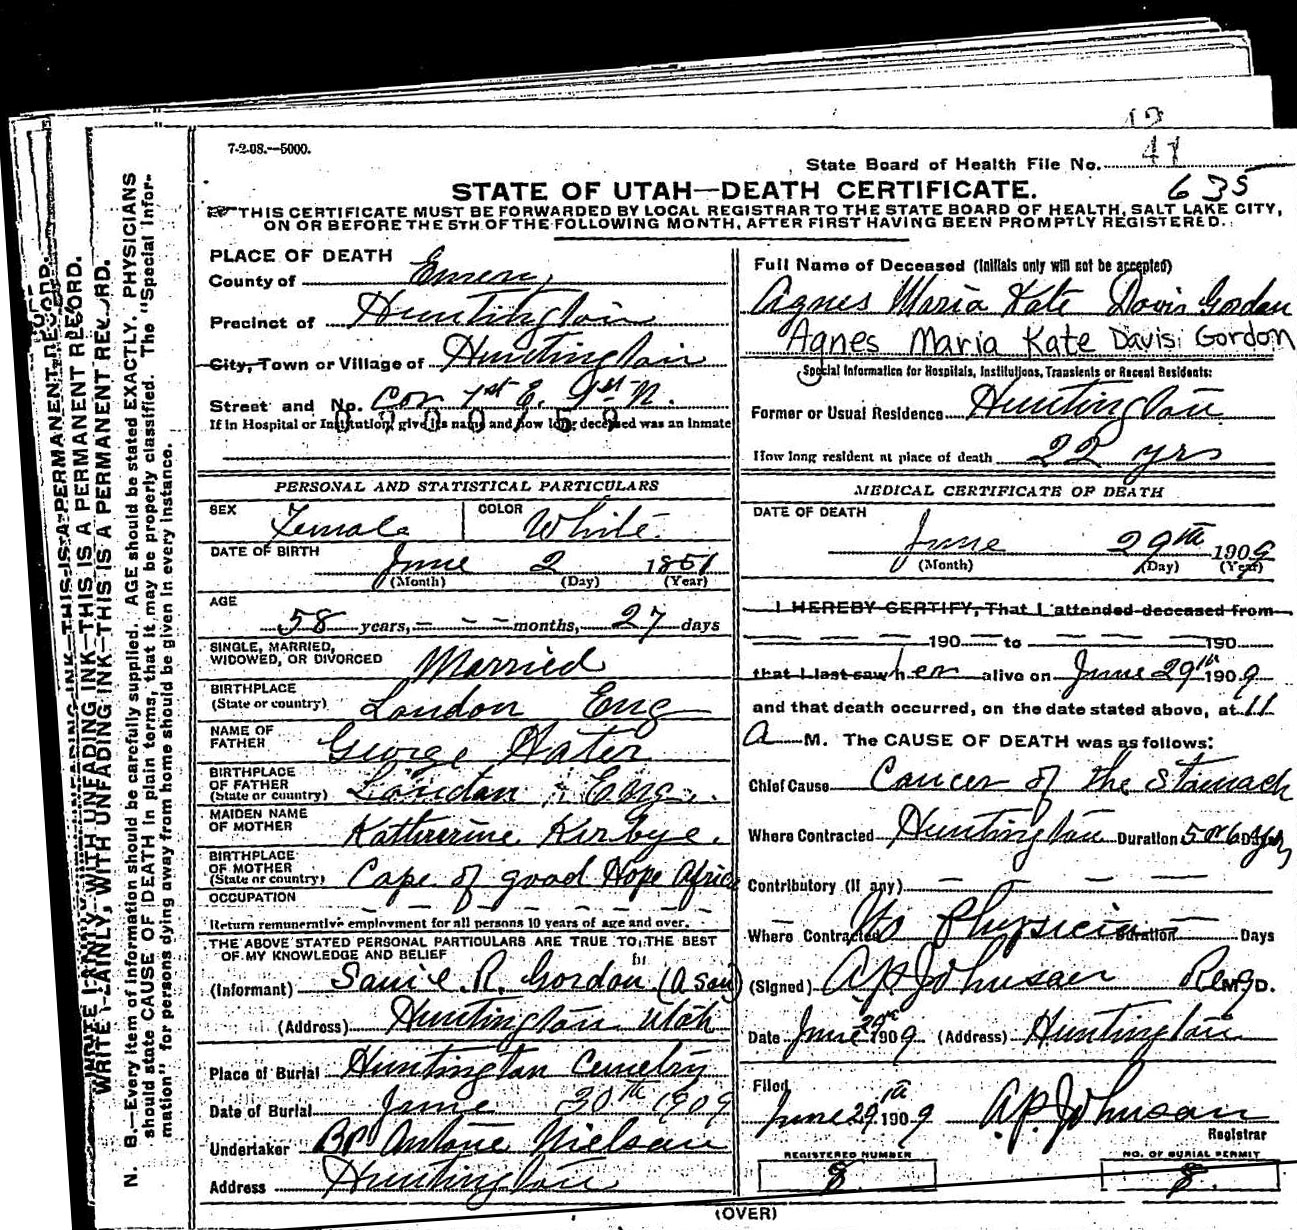 7-2-08.—5000.
State Board of Health File No. 41
635
STATE OF UTAH—DEATH CERTIFICATE.
THIS CERTIFICATE MUST BE FORWARDED BY LOCAL REGISTRAR TO THE STATE BOARD OF HEALTH, SALT LAKE CITY,
ON OR BEFORE THE 5TH OF THE FOLLOWING MONTH, AFTER FIRST HAVING BEEN PROMPTLY REGISTERED.
PLACE OF DEATH
County of Emery
Precinct of Huntington
City, Town or Village of Huntington
Street and No. Cor 1st E. 1st N.
If in Hospital or Institution, give its name and how long deceased was an inmate
PERSONAL AND STATISTICAL PARTICULARS
SEX Female COLOR White
DATE OF BIRTH June 2 1851
(Month) (Day) (Year)
AGE
58 years, — — — months, 27 days
SINGLE, MARRIED,
WIDOWED, OR DIVORCED Married
BIRTHPLACE
(State or country) London Eng
NAME OF
FATHER George Hater
BIRTHPLACE
OF FATHER
(State or country) London Eng.
MAIDEN NAME
OF MOTHER Katherine Kirbye.
BIRTHPLACE
OF MOTHER
(State or country) Cape of good Hope Africa
OCCUPATION — — — — — —
Return remunerative employment for all persons 10 years of age and over.
THE ABOVE STATED PERSONAL PARTICULARS ARE TRUE TO THE BEST
OF MY KNOWLEDGE AND BELIEF
(Informant) R. Gordon (A Son)
(Address) Huntington Utah
Place of Burial Huntington Cemetry
Date of Burial June 30th 1909
Undertaker Bp Antone Nielsen
Address Huntington
Full Name of Deceased (Initials only will not be accepted)
Agnes Maria Kate Davis Gordon
Agnes Maria Kate Davis Gordon
Special Information for Hospitals, Institutions, Transients or Recent Residents:
Former or Usual Residence Huntington
How long resident at place of death 22 yrs
MEDICAL CERTIFICATE OF DEATH
DATE OF DEATH
June 29th 1909
(Month) (Day) (Year)
I HEREBY CERTIFY, That I attended deceased from
— — — — 190 — to — — — — 190
that I last saw her alive on June 29th 1909
and that death occurred, on the date stated above, at 11
A M. The CAUSE OF DEATH was as follows:
Chief Cause Cancer of the Stomach
Where Contracted Huntington Duration 5 or 6
Contributory (If any) — — — — —
No Physician
Where Contracted Duration — Days
(Signed) A.P. Johnson Reg M. D.
Date June 29th 1909 (Address) Huntington
Filed
June 29th 1909 A.P. Johnson
Registrar
REGISTERED NUMBER
8
NO. OF BURIAL PERMIT
8
(OVER)
WRITE PLAINLY, WITH UNFADING INK—THIS IS A PERMANENT RECORD.
N. B.—Every item of information should be carefully supplied. AGE should be stated EXACTLY. PHYSICIANS
should state CAUSE OF DEATH in plain terms, that it may be properly classified. The "Special Infor-
mation" for persons dying away from home should be given in every instance.